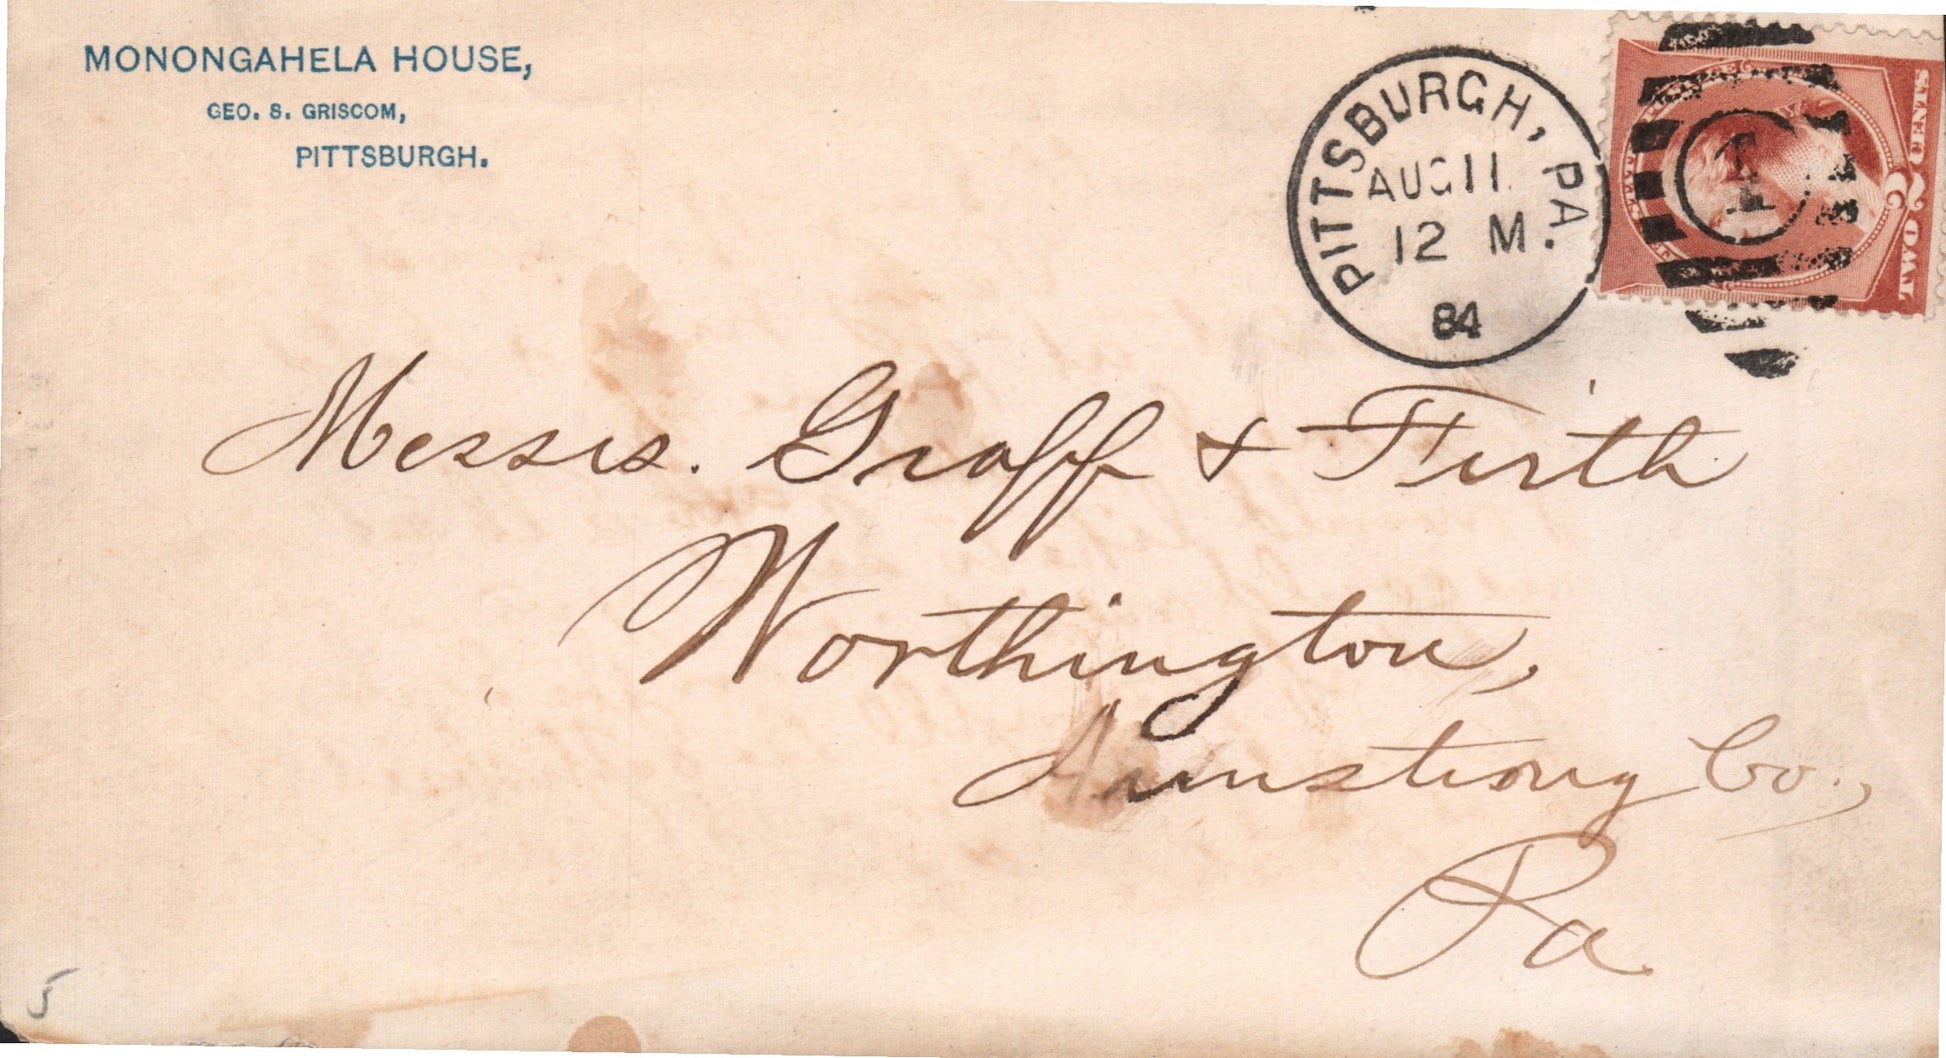 MONONGAHELA HOUSE,
GEO. S. GRISCOM,
PITTSBURGH.
PITTSBURGH, PA.
AUG 11
12 M.
84
1
TWO 2c CENTS
Messrs. Graff & Firth
Worthington,
Armstrong Co.,
Pa
5